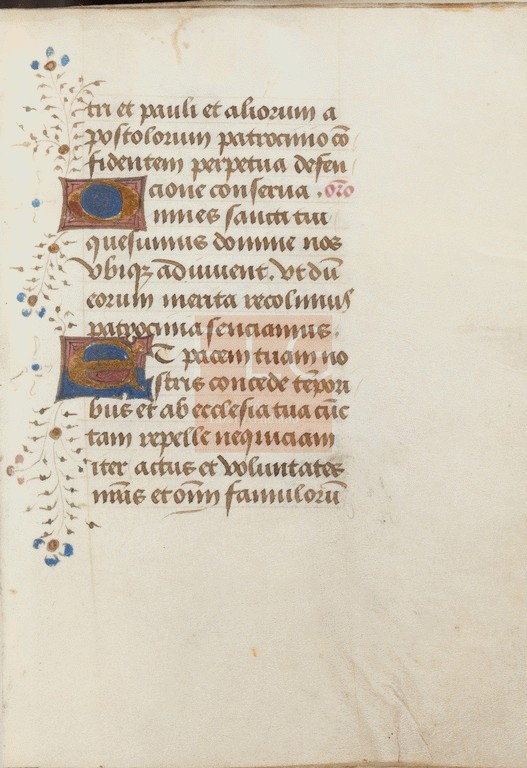 tri et pauli et aliorum a
postolorum patrocinio cō
fidentem perpetua defen
cione conserua . oro
Omnes sancti tui
quesumus domine nos
vbiqȝ adiuuent. Vt dū
eorum merita recolimus
patrocinia senciamus.
ET pacem tuam no
stris concede tēpori
bus et ab ecclesia tua cūc
tam repelle nequiciam
iter actus et voluntates
nr̄as et oīm famulorū